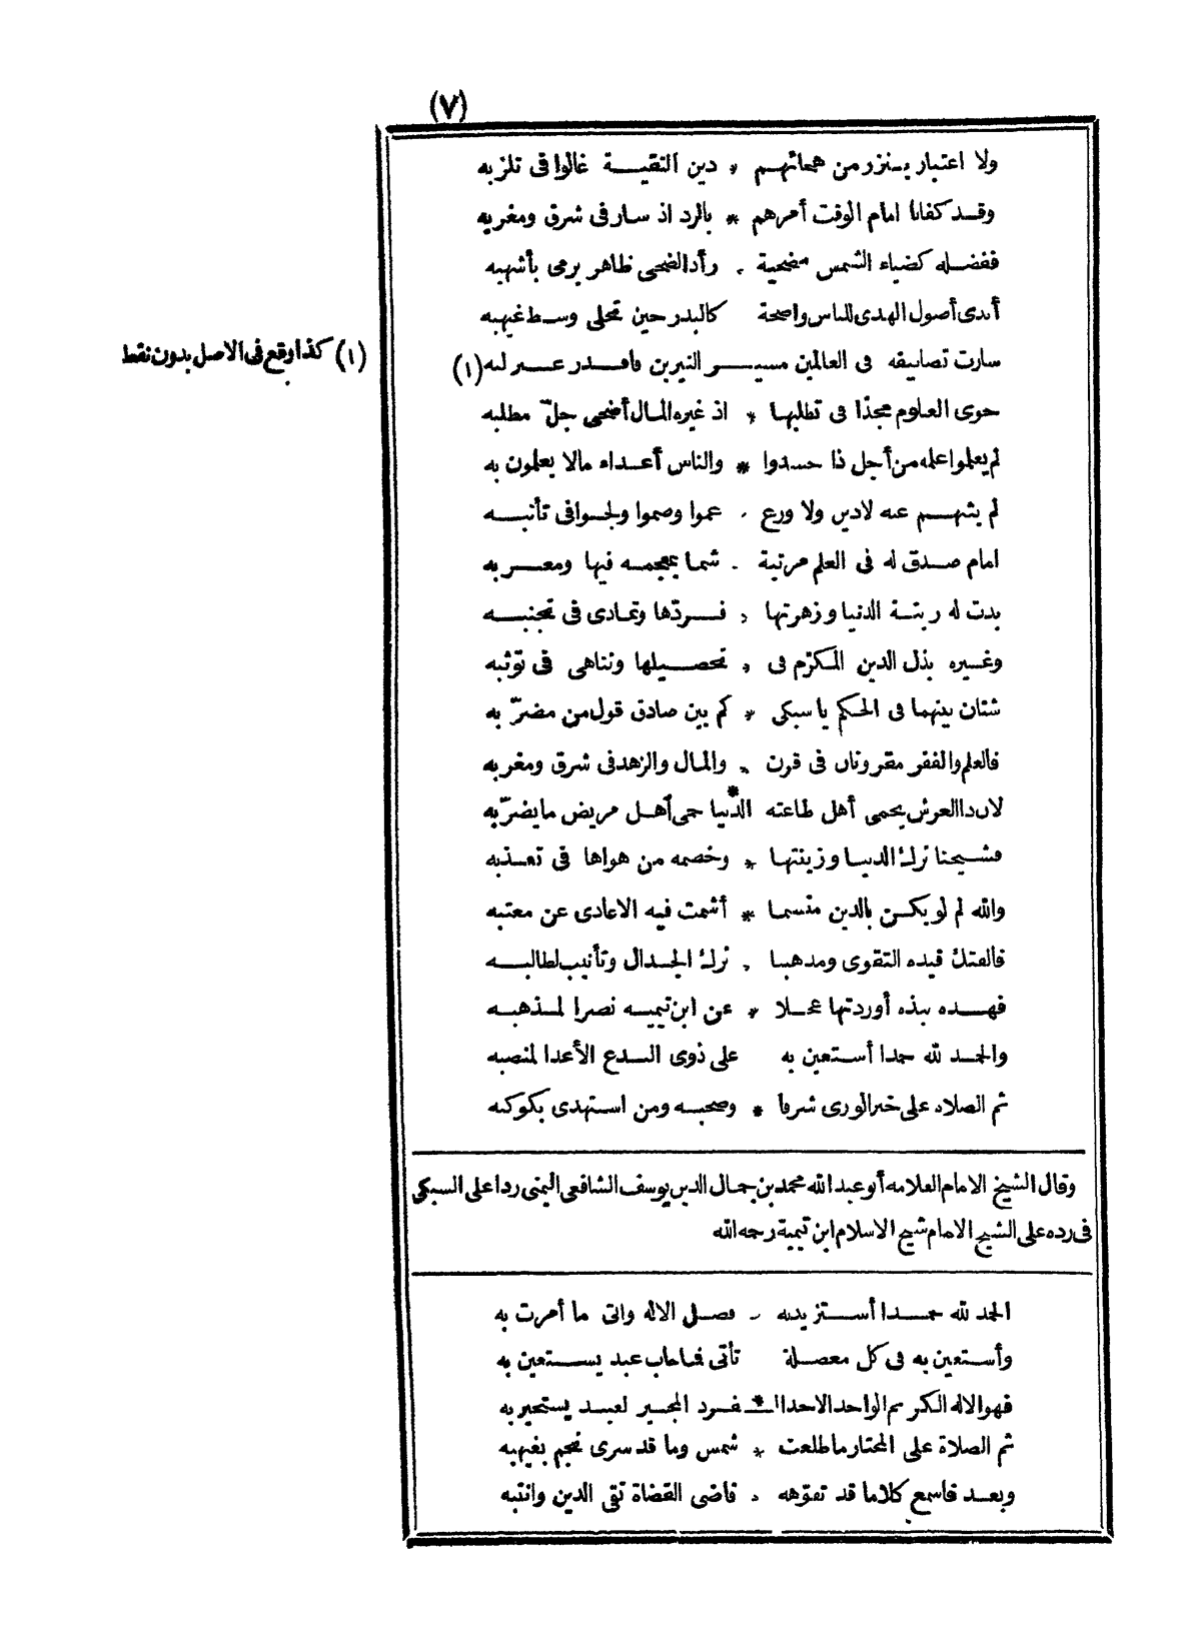 (٧)
ولا اعتبار بمنزر من همهائهم * دين التقيـة غالوا فى تلزبه
وقد كفانا امام الوقت أمرهم * بالرد اذ سار فى شرق ومغربه
ففضله كضياء الشمس مضحية * رأد الضحى ظاهر يرمى بأشهبه
أبدى أصول الهدى للناس واضحة كالبدر حين تجلى وسط غيهبه
سارت تصانيفه فى العالمين مسير النيرين (١)
(١) كذا وقع فى الاصل بدون نقط
حوى العلوم مجدّا فى تطلبها * اذ غيره المال أضحى جلّ مطلبه
لم يعلموا علمه من أجل ذا حسدوا * والناس أعداء ما لا يعلمون به
لم ينههم عنه لا دين ولا ورع * عموا وصموا ولجوا فى تأنبه
امام صدق له فى العلم مرتبة * شما بمعجمه فيها ومعربه
بدت له زينة الدنيا وزهرتها * فردّها وتمادى فى تجنبه
وغيره بذل الدين المكرّم فى * تحصيلها وتناهى فى توثبه
شتان بينهما فى الحكم يا سبكى * كم بين صادق قول من مضرّ به
فالعلم والفقر مقرونان فى قرن * والمال والزهد فى شرق ومغربه
لان ذا العرش يحمى أهل طاعته * الدّنيا حمى أهل مريض ما يضرّ به
فشيخنا ترك الدنيا وزينتها * وخصمه من هواها فى تعذبه
والله لم لو يكن بالدين متسما * أشمت فيه الاعادى عن معتبه
فالفتك قيده التقوى ومذهبنا * ترك الجدال وتأنيب لطالبه
فهذه نبذه أوردتها عجلا * عن ابن تيميه نصرا لمذهبه
والحمد لله حمدا أستعين به على ذوى البدع الأعدا لمنصبه
ثم الصلاه على خير الورى شرفا * وصحبه ومن استهدى بكوكبه
وقال الشيخ الامام العلامه أبو عبد الله محمد بن جمال الدين يوسف الشافعى اليمنى ردا على السبكى
فى رده على الشيخ الامام شيخ الاسلام ابن تيمية رحمه الله
الحمد لله حمدا أستزيد به * فضل الاله واتى ما أمرت به
وأستعين به فى كل معضلة تأتى فما خاب عبد يستعين به
فهو الاله الكريم الواحد الاحد الـ * ـفرد المجير لعبد يستجير به
ثم الصلاة على المختار ما طلعت * شمس وما قد سرى نجم بغيهبه
وبعد فاسمع كلاما قد تفوّهه * قاضى القضاة تقى الدين وانتبه